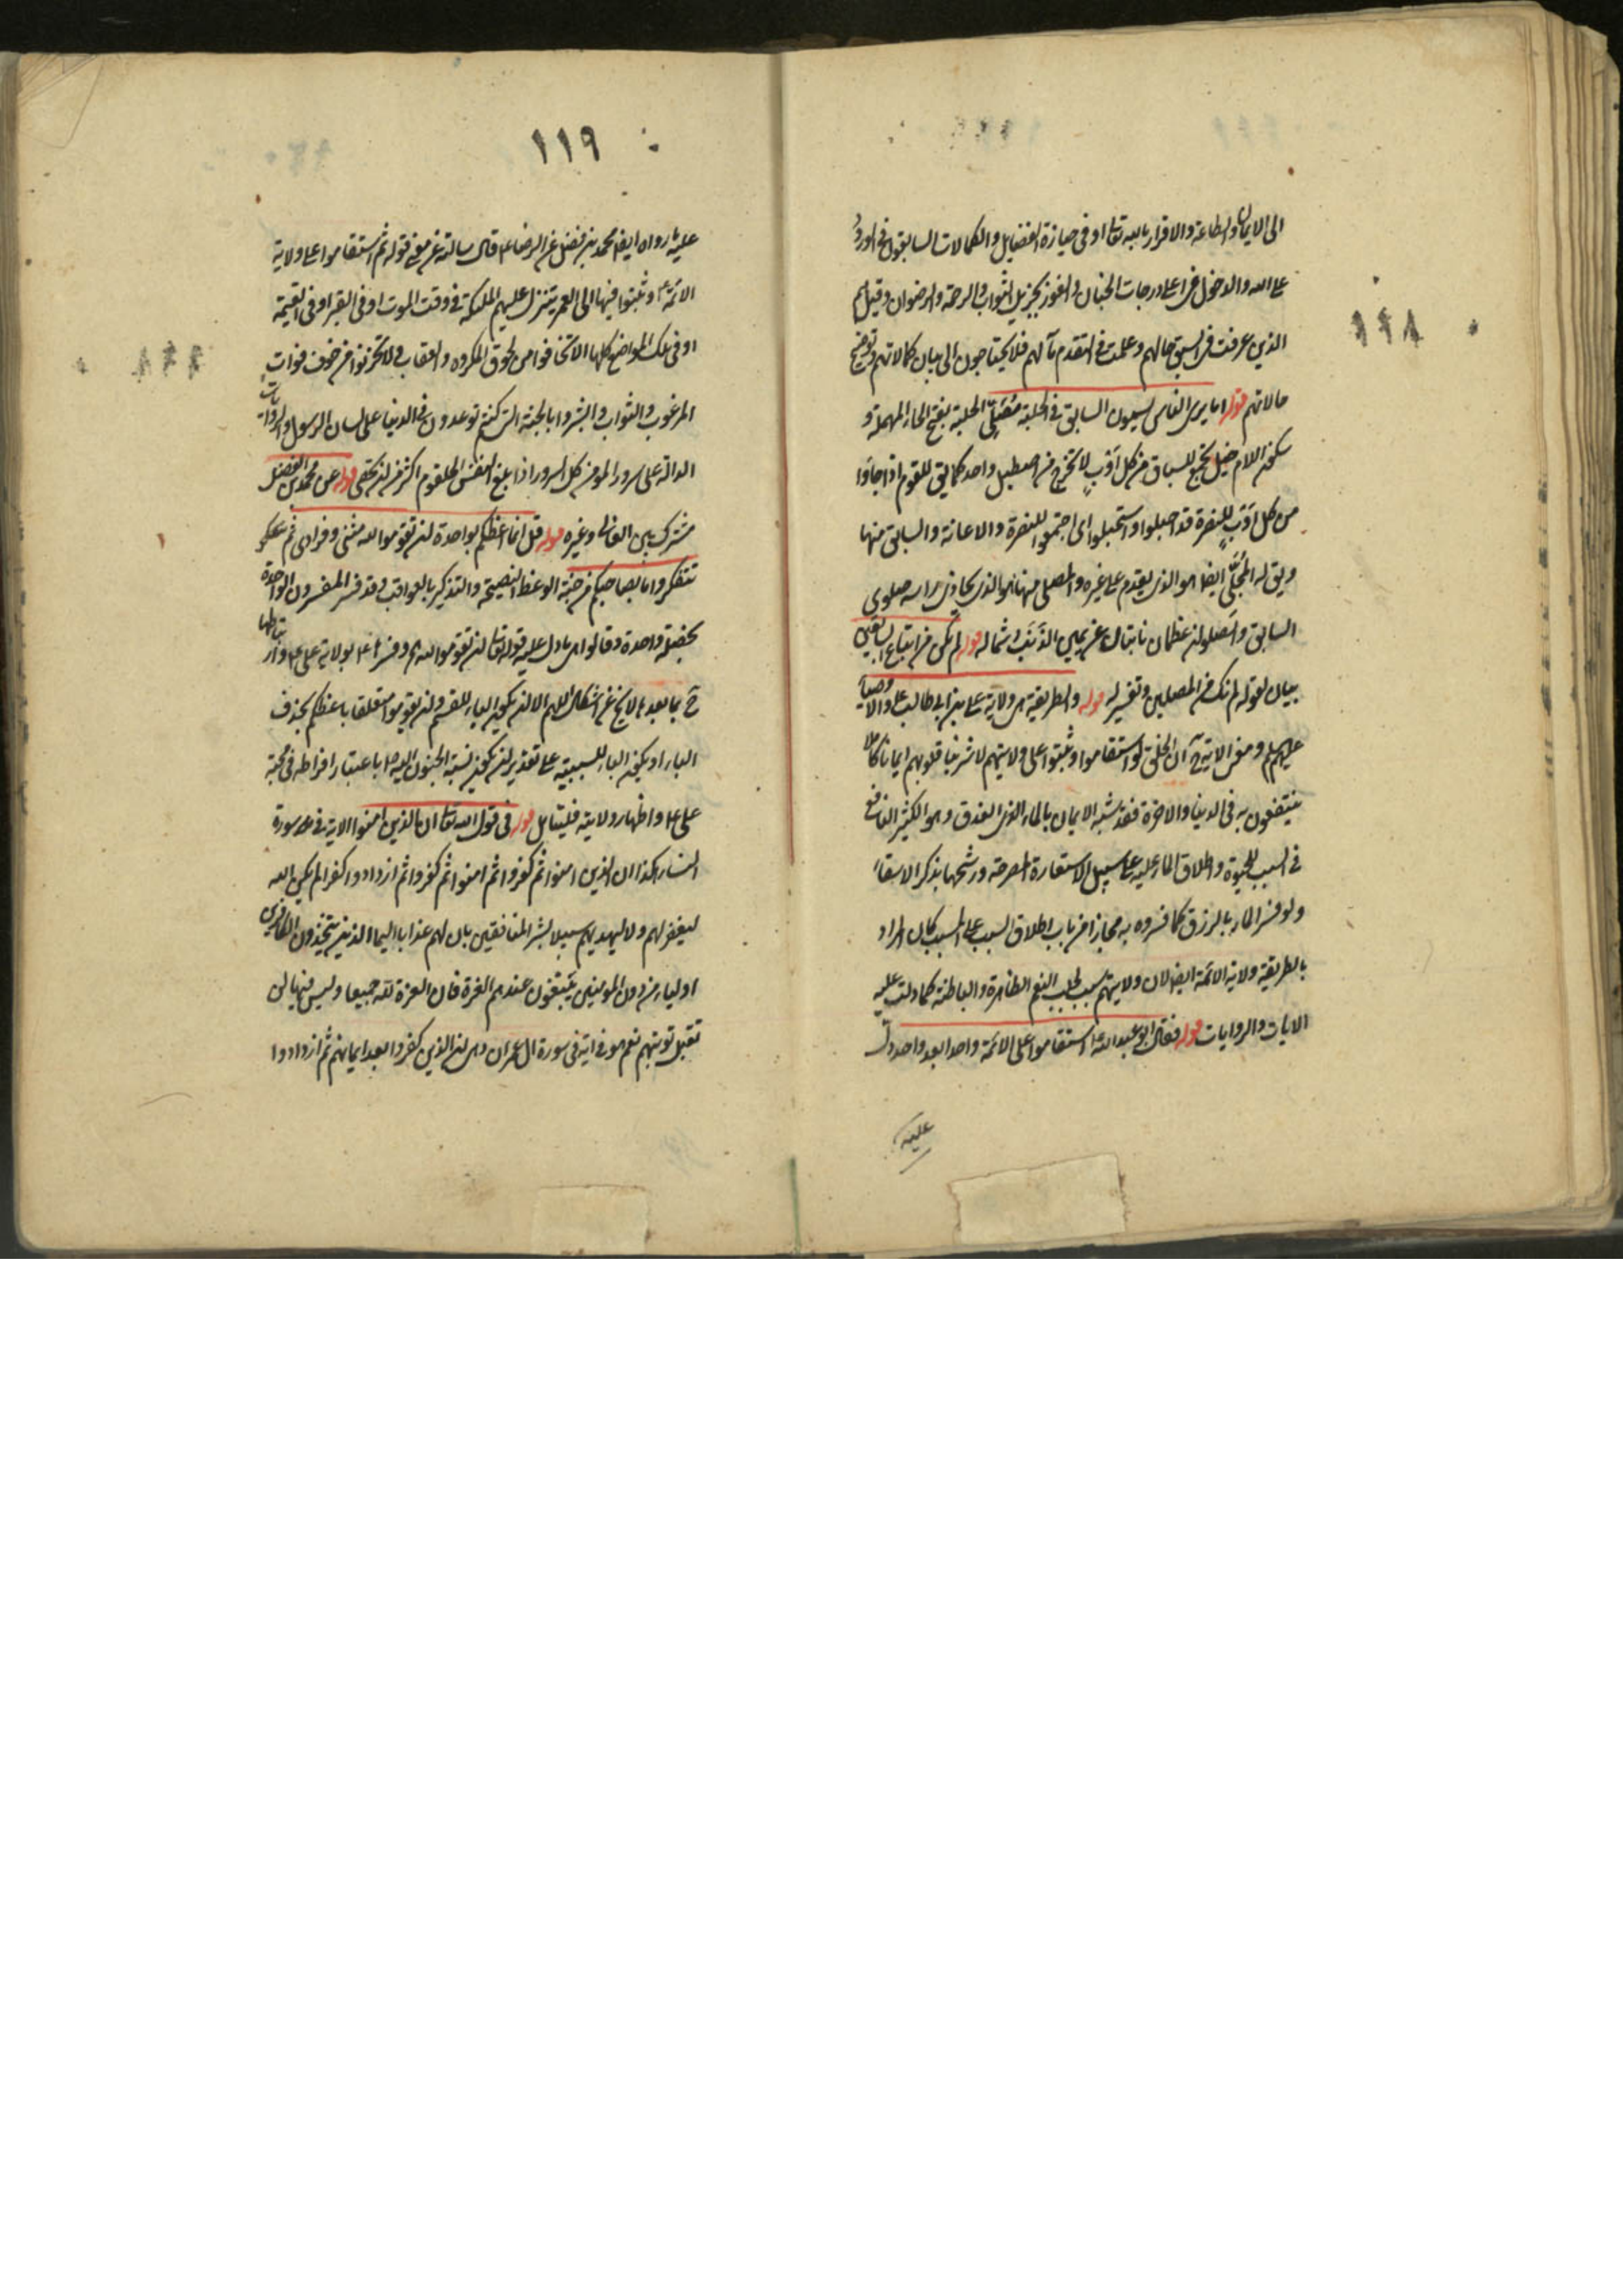 الى الايمان والطاعة والاقرار بالله تعا او فى حيازة الفضايل والكمالات السابقون فى الورود
على الله والدخول فى اعلى درجات الجنان والفوز بجزيل الثواب والرحمة والرضوان وقيل هم
الذين عرفت فى السبق حالهم وعلمت فى المتقدم مآلهم فلا يحتاجون الى بيان كمالاتهم وتوضيح
حالاتهم قوله اما يرى الناس يسمون السابق فى الحلبة مُصَلِّى الحلبة بفتح الحاء المهملة و
سكون اللام خيل تجمع للسباق من كل اَوْبٍ لا تخرج من اصطبل واحد كما يق للقوم اذا جاؤا
من كل اَوْبٍ للنصرة قد احلبوا واستحلبوا اى اجتمعوا للنصرة والاعانة والسابق منها
ويق له المُجَلّى ايضا هو الذى يقدم على غيره والمصلى منها هو الذى يحاذى راسه صلوى
السابق والصلوان عظمان نابتان عن يمين الذَنَب وشماله قوله لم نكن من اتباع السابقين
بيان لقوله لم نك من المصلين وتفسير له قوله والطريقة هى ولاية على بن ابى طالب ع والاوصياء
عليهم السلم ومعنى الاية ح ان الخلق لو استقاموا وثبتوا على ولايتهم لاشربنا قلوبهم ايمانا كاملا
ينتفعون به فى الدنيا والاخرة فقد شبه الايمان بالماء الذى الغدق وهو الكثير النافع
فى السبب للحيوة واطلاق الماء عليه على سبيل الاستعارة المصرحة ورشحها بذكر الاسقاء
ولو فسر الماء بالرزق كما فسروه به مجازا من باب اطلاق السبب على المسبب كان المراد
بالطريقة ولاية الائمة ايضا لان ولايتهم سبب لجلب النعم الظاهرة والباطنة كما دلت عليه
الايات والروايات قوله فقال ابو عبد الله ع استقاموا على الائمة واحدا بعد واحد دل
عليه
١١٩
عليه ما رواه ايضا محمد بن فضيل عن الرضا ع قال سالته عن معنى قوله ثم استقاموا على ولاية
الائمة ع وثبتوا فيها الى العمر يتنزل عليهم الملئكة فى وقت الموت او فى القبر او فى القيمة
او فى تلك المواضع كلها الا تخافوا من لحوق المكروه والعقاب ولا تحزنوا من خوف فوات
المرغوب والثواب وابشروا بالجنة التى كنتم توعدون فى الدنيا على لسان الرسول والروايات
الدالة على سرور المؤمن كل السرور اذا بلغ النفس الحلقوم اكثر من ان تحصى قوله عن محمد بن الفضيل
مشترك بين الغالى وغيره قوله قل انما اعظكم بواحدة ان تقوموا لله مثنى وفرادى ثم
تتفكروا ما بصاحبكم من جنة الوعظ النصيحة والتذكير بالعواقب وقد فسر المفسرون الواحدة
بخصلة واحدة وقالوا هى ما دل عليه قوله تعا ان تقوموا لله وفسرها ع بولاية على ع
ح بما بعدها لا يخ عن اشكال اللهم الا ان يكون الباء للقسم وان تقوموا متعلقا باعظكم بحذف
الباء او يكون الباء للسببية على تقدير ان يكون نسبة الجنون اليه ص باعتبار افراطه فى محبة
على ع واظهار ولايته فليتامل قوله فى قول الله تعا ان الذين امنوا الاية فى سورة
النساء هكذا ان الذين امنوا ثم كفروا ثم امنوا ثم كفروا ثم ازدادوا كفرا لم يكن الله
ليغفر لهم ولا ليهديهم سبيلا بشر المنافقين بان لهم عذابا اليما الذين يتخذون الكافرين
اولياء من دون المؤمنين يَبتغون عندهم العزة فان العزة لله جميعا وليس فيها لن
تقبل توبتهم نعم هو فى اية فى سورة ال عمران وهى ان الذين كفروا بعد ايمانهم ثم ازدادوا